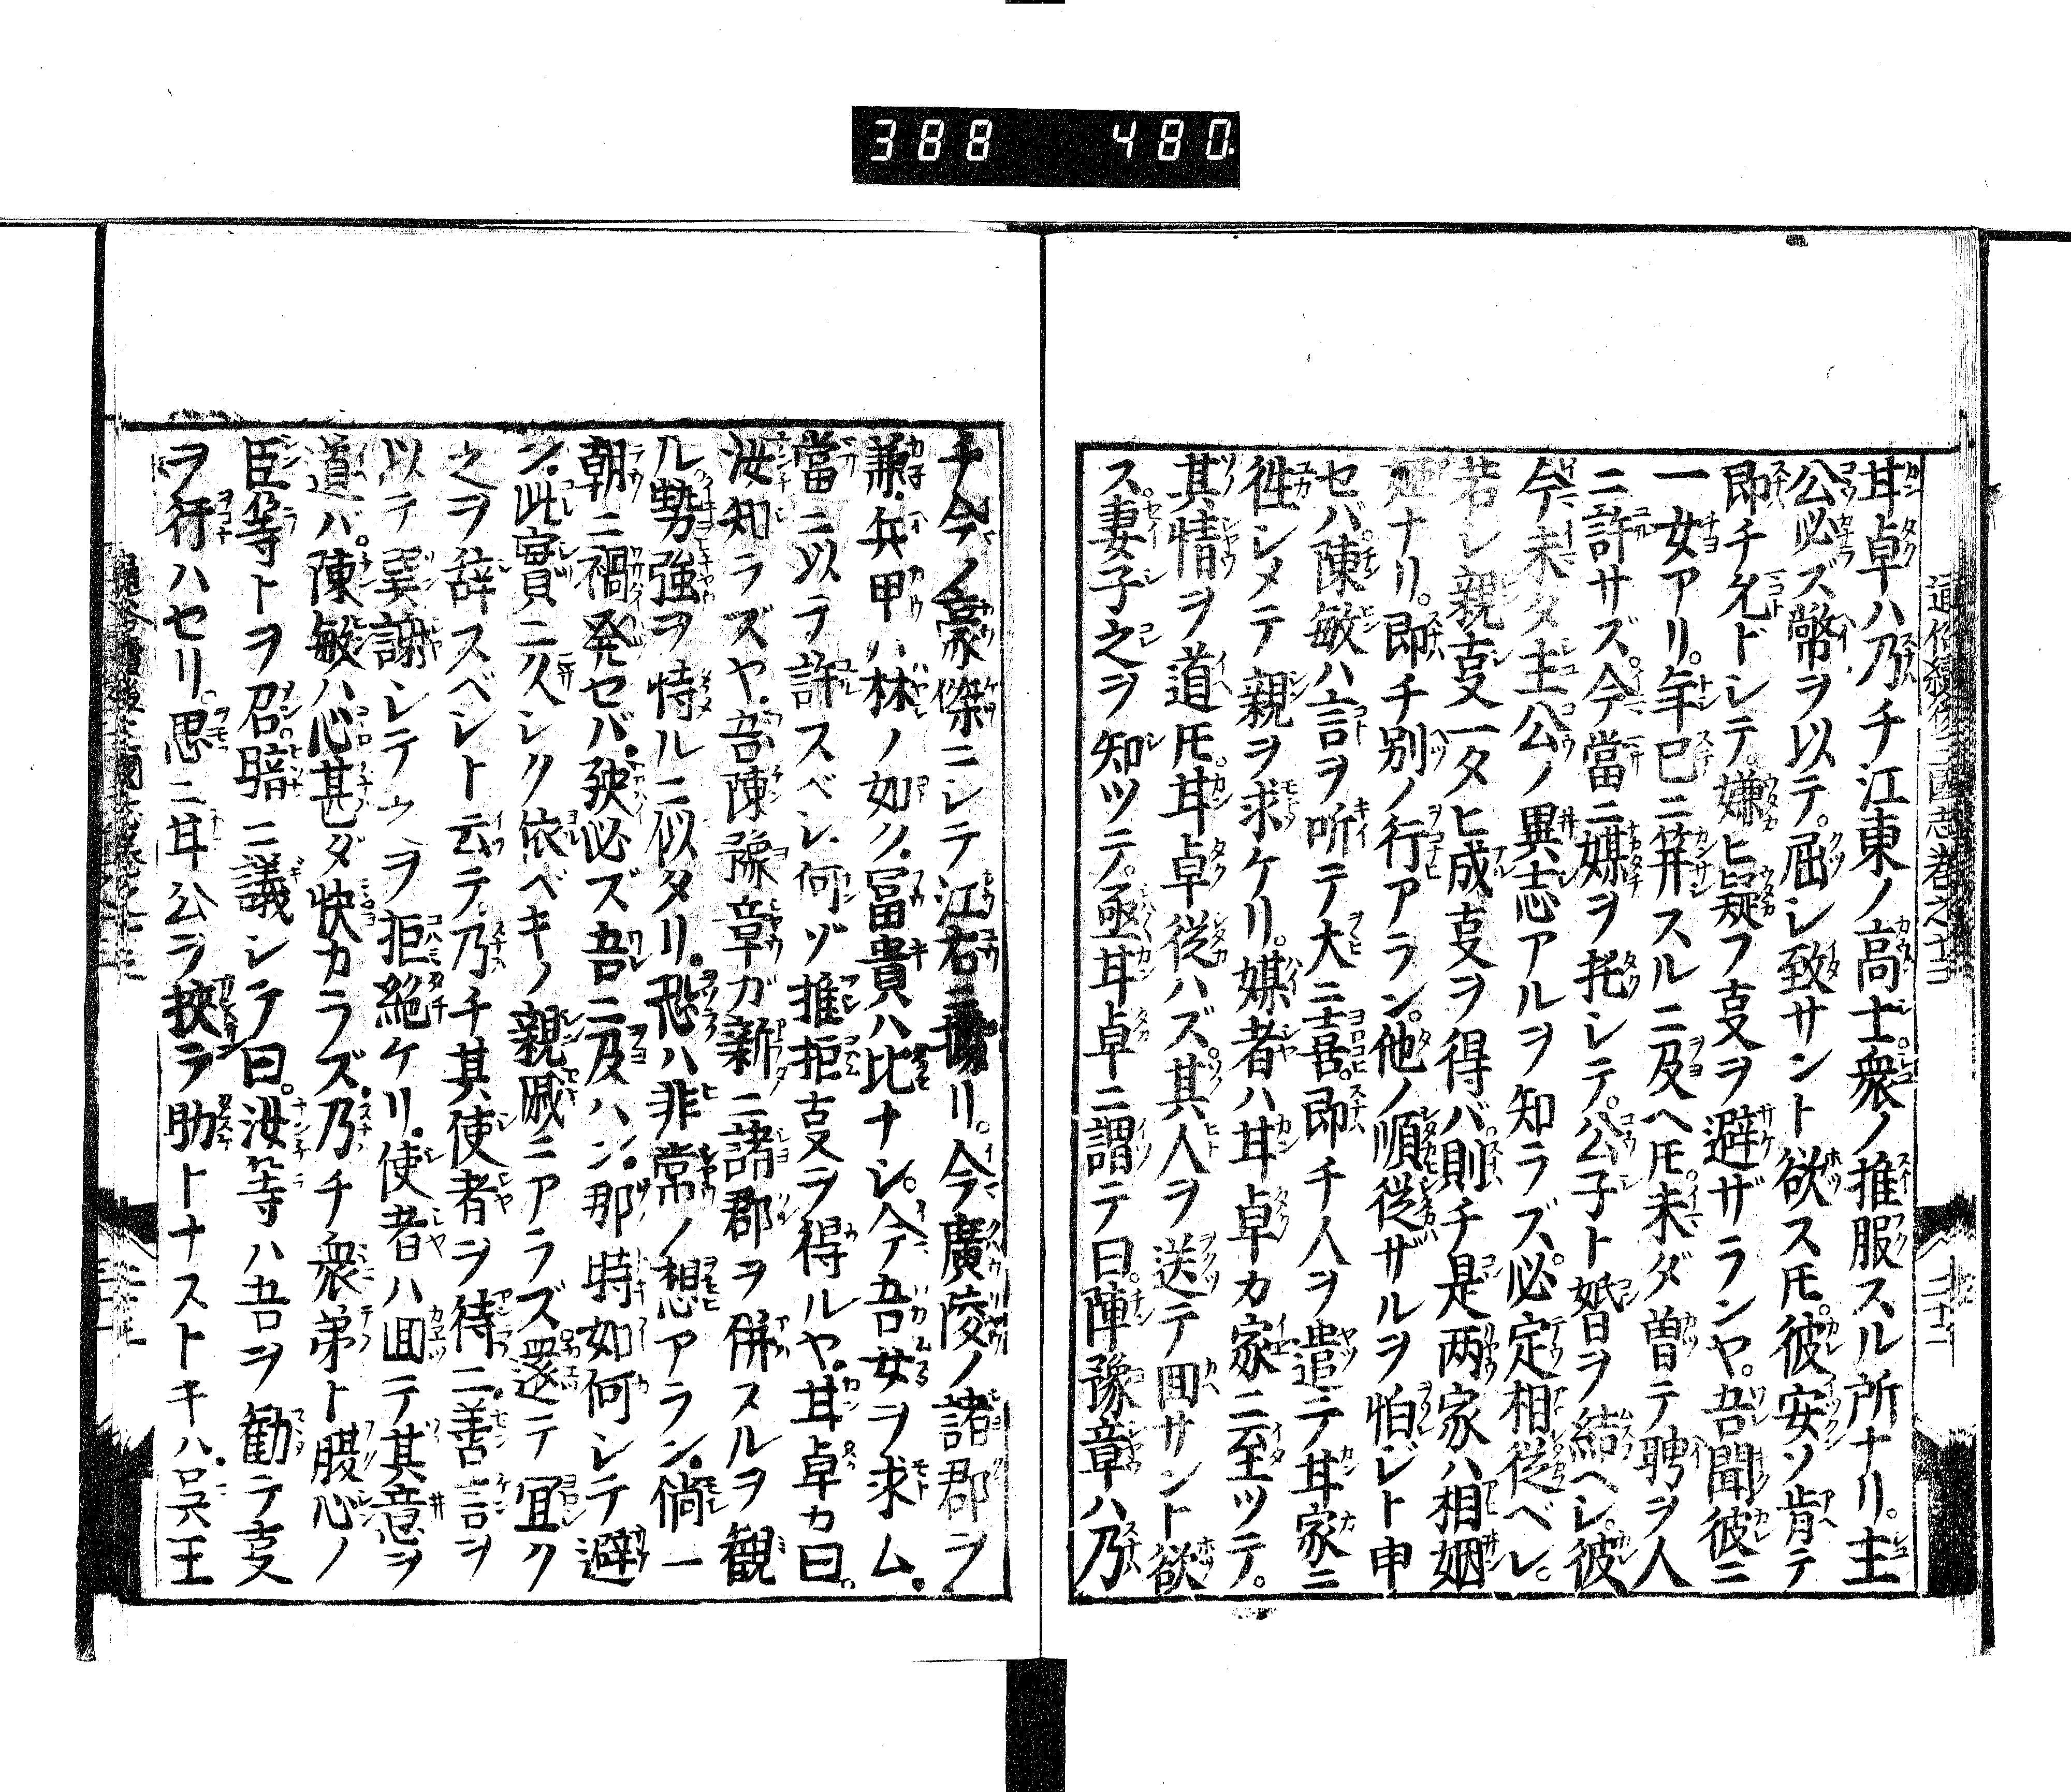 388 480
通俗續後三國志卷之十三
甘卓ハ乃チ江東ノ高士。衆ノ推服スル所ナリ。主
公必ズ幣ヲ以テ。屈シ致サント欲スモ。彼安ソ肯テ
即チ允ドシテ。嫌ヒ疑フ支ヲ避ザランヤ。吾聞彼ニ
一女アリ。年已ニ笄スルニ及ヘモ。未ダ曽テ聘ヲ人
ニ許サズ。今當ニ媒ヲ托シテ。公子ト婚ヲ結ヘシ。彼
今未タ主公ノ異志アルヲ知ラズ。必定相従ベシ。
若シ親支一タヒ成支ヲ得バ。則チ是两家ハ相姻
ナリ。即チ别ノ行アラン。他ノ順従ザルヲ怕レジト申
セバ。陳敏ハ言ヲ听テ大ニ喜。即チ人ヲ遣テ甘家ニ
徃シメテ親ヲ求ケリ。媒者ハ甘卓カ家ニ至ツテ。
其情ヲ道モ。甘卓従ハズ。其人ヲ送テ囬サント欲
ス。妻子之ヲ知ツテ。亟甘卓ニ謂テ曰。陣豫章ハ乃
チ今ノ豪傑ニシテ江右ニ據リ。今廣陵ノ諸郡ヲ
兼。兵甲ハ林ノ如ク。富貴ハ比ナシ。今吾女ヲ求ム。
當ニ以テ許スベシ。何ゾ推拒支ヲ得ルヤ。甘卓カ曰。
汝知ラズヤ。吾陳豫章ガ新ニ諸郡ヲ併スルヲ観
ル。勢強ヲ恃ルニ似タリ。恐ハ非常ノ想アラン。倘一
朝ニ禍発セバ。殃必ズ吾ニ及ハン。那時如何シテ避
ン。此實ニ久シク依ベキノ親戚ニアラズ。遂テ宜ク
之ヲ辞スベシト云テ。乃チ其使者ヲ待ニ。善言ヲ
以テ巽謝シテヲ拒絶ケリ。使者ハ囬テ其意ヲ
道バ。陳敏ハ心甚ダ快カラズ。乃チ衆弟ト腹心ノ
臣等トヲ召。暗ニ議シテ曰。汝等ハ吾ヲ勧テ支
ヲ行ハセリ。思ニ甘公ヲ挾テ助トナストキハ。呉王